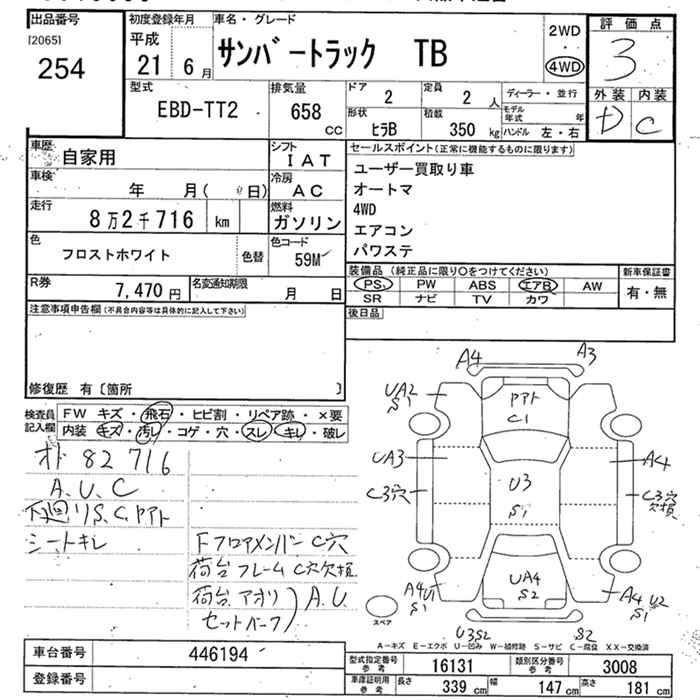 出品番号
[2065]
254
初度登録年月
平成
21 6月
車名・グレード
サンバートラック TB
2WD
・
4WD
評価点
3
外装 内装
D C
型式
EBD-TT2
排気量
658
CC
ドア
2
定員
2 人
形状
ヒラB
積載
350 kg
ディーラー・並行
モデル年式 年
ハンドル 左・右
車歴
自家用
シフト
IAT
車検
年 月( 日)
冷房
AC
走行
8万2千716 km
燃料
ガソリン
色
フロストホワイト
色替
色コード
59M
R券
7,470円
名変通知期限
月 日
セールスポイント(正常に機能するものに限ります)
ユーザー買取り車
オートマ
4WD
エアコン
パワステ
装備品(純正品に限り○をつけてください)
PS PW ABS エアB AW
SR ナビ TV カワ
新車保証書
有・無
後日品
注意事項申告欄(不具合内容等は具体的に記入して下さい)
修復歴 有〔箇所 〕
検査員記入欄
FW キズ・飛石・ヒビ割・リペア跡・×要
内装 キズ・汚レ・コゲ・穴・スレ・キレ・破レ
オド 82716
A.U.C
下廻リS.C.ヤアト
シートキレ
Fフロアメンバー C穴
荷台フレーム C穴欠損
荷台アオリ
セットバーフ
A.U.
A4 A3
UA2
S1
ヤアト
C1
UA3
U3
S1
A4
C3穴
C3穴
欠損
UA4
S2
A4U1
S1
A4 U2
S1
U3S2
S2
スペア
A−キズ E−エクボ U−凹み W−補修跡 S−サビ C−腐食 XX−交換済
車台番号
446194
登録番号
型式指定番号
参考
16131
類別区分番号
参考
3008
車庫証明用
参考
長さ 339 cm 幅 147 cm 高さ 181 cm